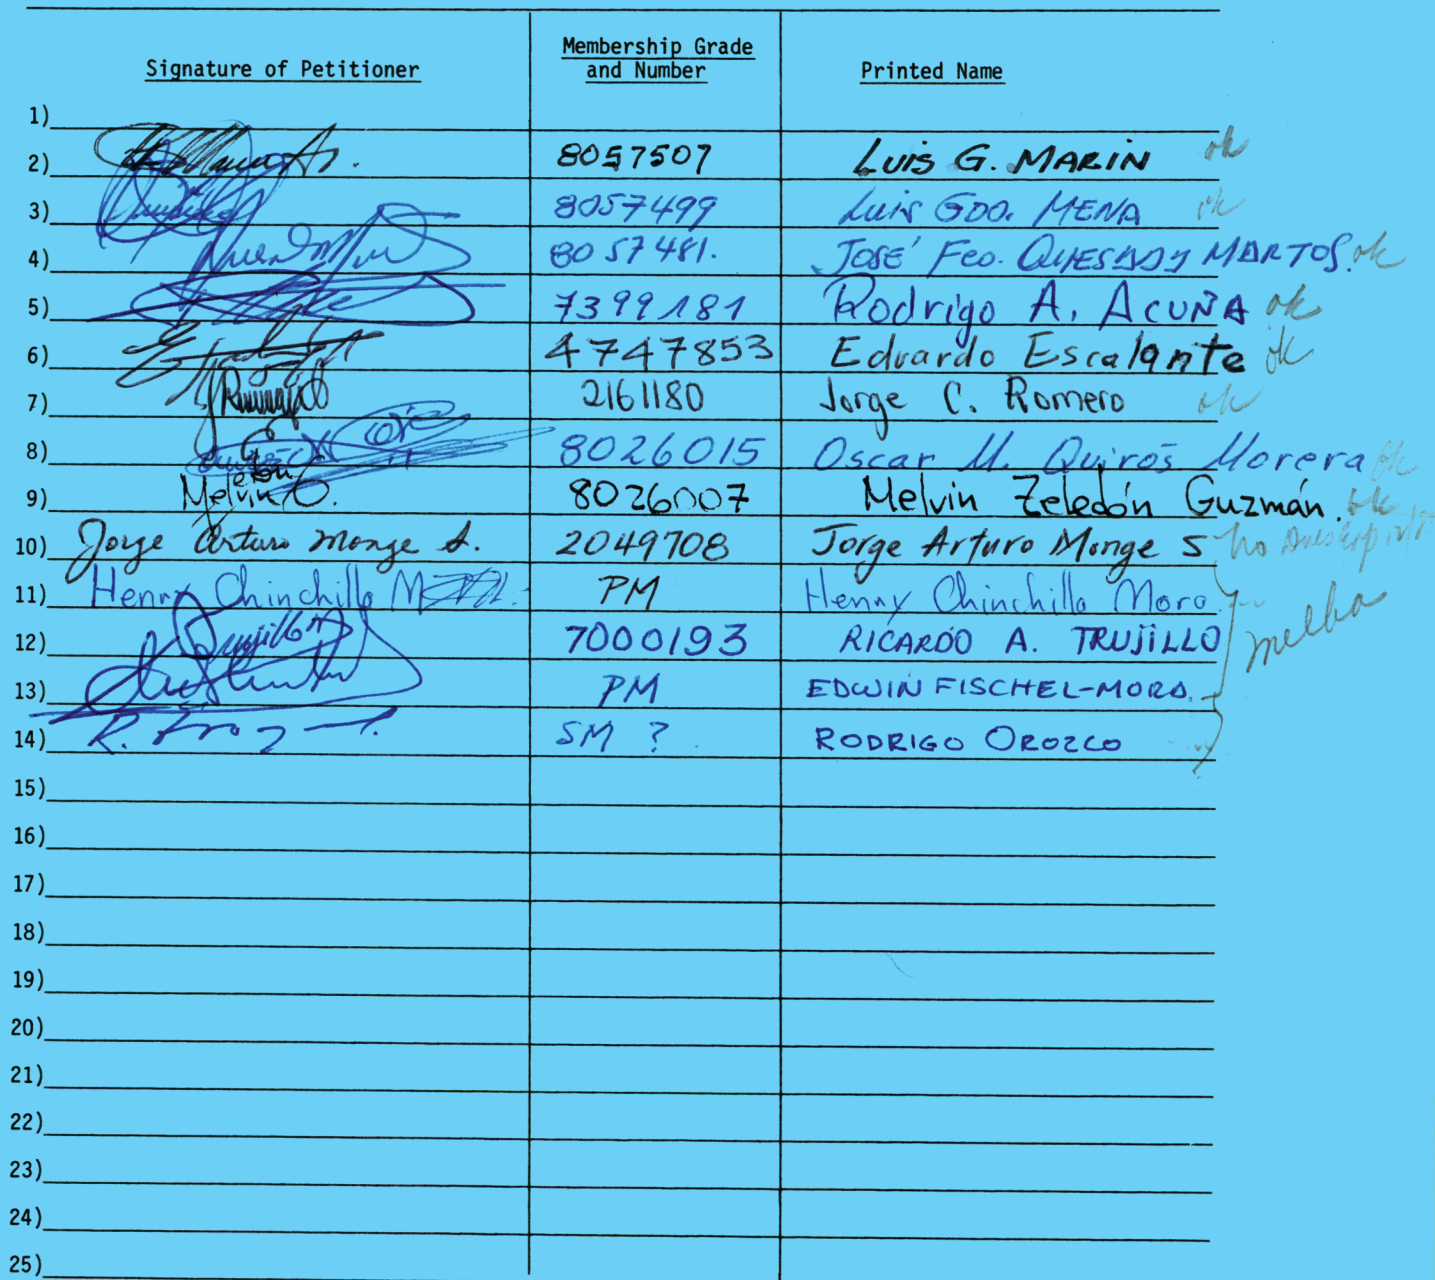 Signature of Petitioner Membership Grade and Number Printed Name
1)
2) 8057507 LUIS G. MARIN ok
3) 8057499 LUIS GDO. MENA ok
4) 8057481. JOSÉ FCO. QUESADA MARTOS. ok
5) 7399181 Rodrigo A. ACUÑA ok
6) 4747853 Eduardo Escalante ok
7) 2161180 Jorge C. Romero ok
8) 8026015 Oscar M. Quirós Morera ok
9) Melvin Z. 8026007 Melvin Zeledón Guzmán. ok
10) Jorge Arturo Monge S. 2049708 Jorge Arturo Monge S no
11) Henry Chinchilla M PM Henry Chinchilla Mora
12) Trujillo 7000193 RICARDO A. TRUJILLO melba
13) PM EDWIN FISCHEL-MORA.
14) R. Orozco SM ? RODRIGO OROZCO
15)
16)
17)
18)
19)
20)
21)
22)
23)
24)
25)